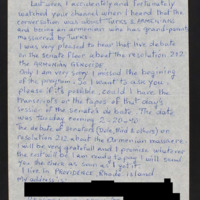 Last week, I accidently and fortunately
watched your channel when I heard that the
conversation was about TURKS & ARMENIANS
and being an armenian who has grand-parents
massacred by TURKS.
I was very pleased to hear that live debate
in the Senate floor about the resolution 212
the ARMENIAN GENOCIDE
Only I am very sorry I missed the beginning
of the program. So I want to ask you
please if it's possible could I have the
transcripts or the tapes of that day's
session of the senator's debate. The date
was Tuesday evening 2-20-90
The debate of Senators (Dole, Bird & others) on
resolution 212 about the Armenian massacre
I will be very gratefull and I promise whatever
the cost will be I am ready to pay. I will send
you the check as soon as I get it.
I live in PROVIDENCE, Rhode Island
my address is: